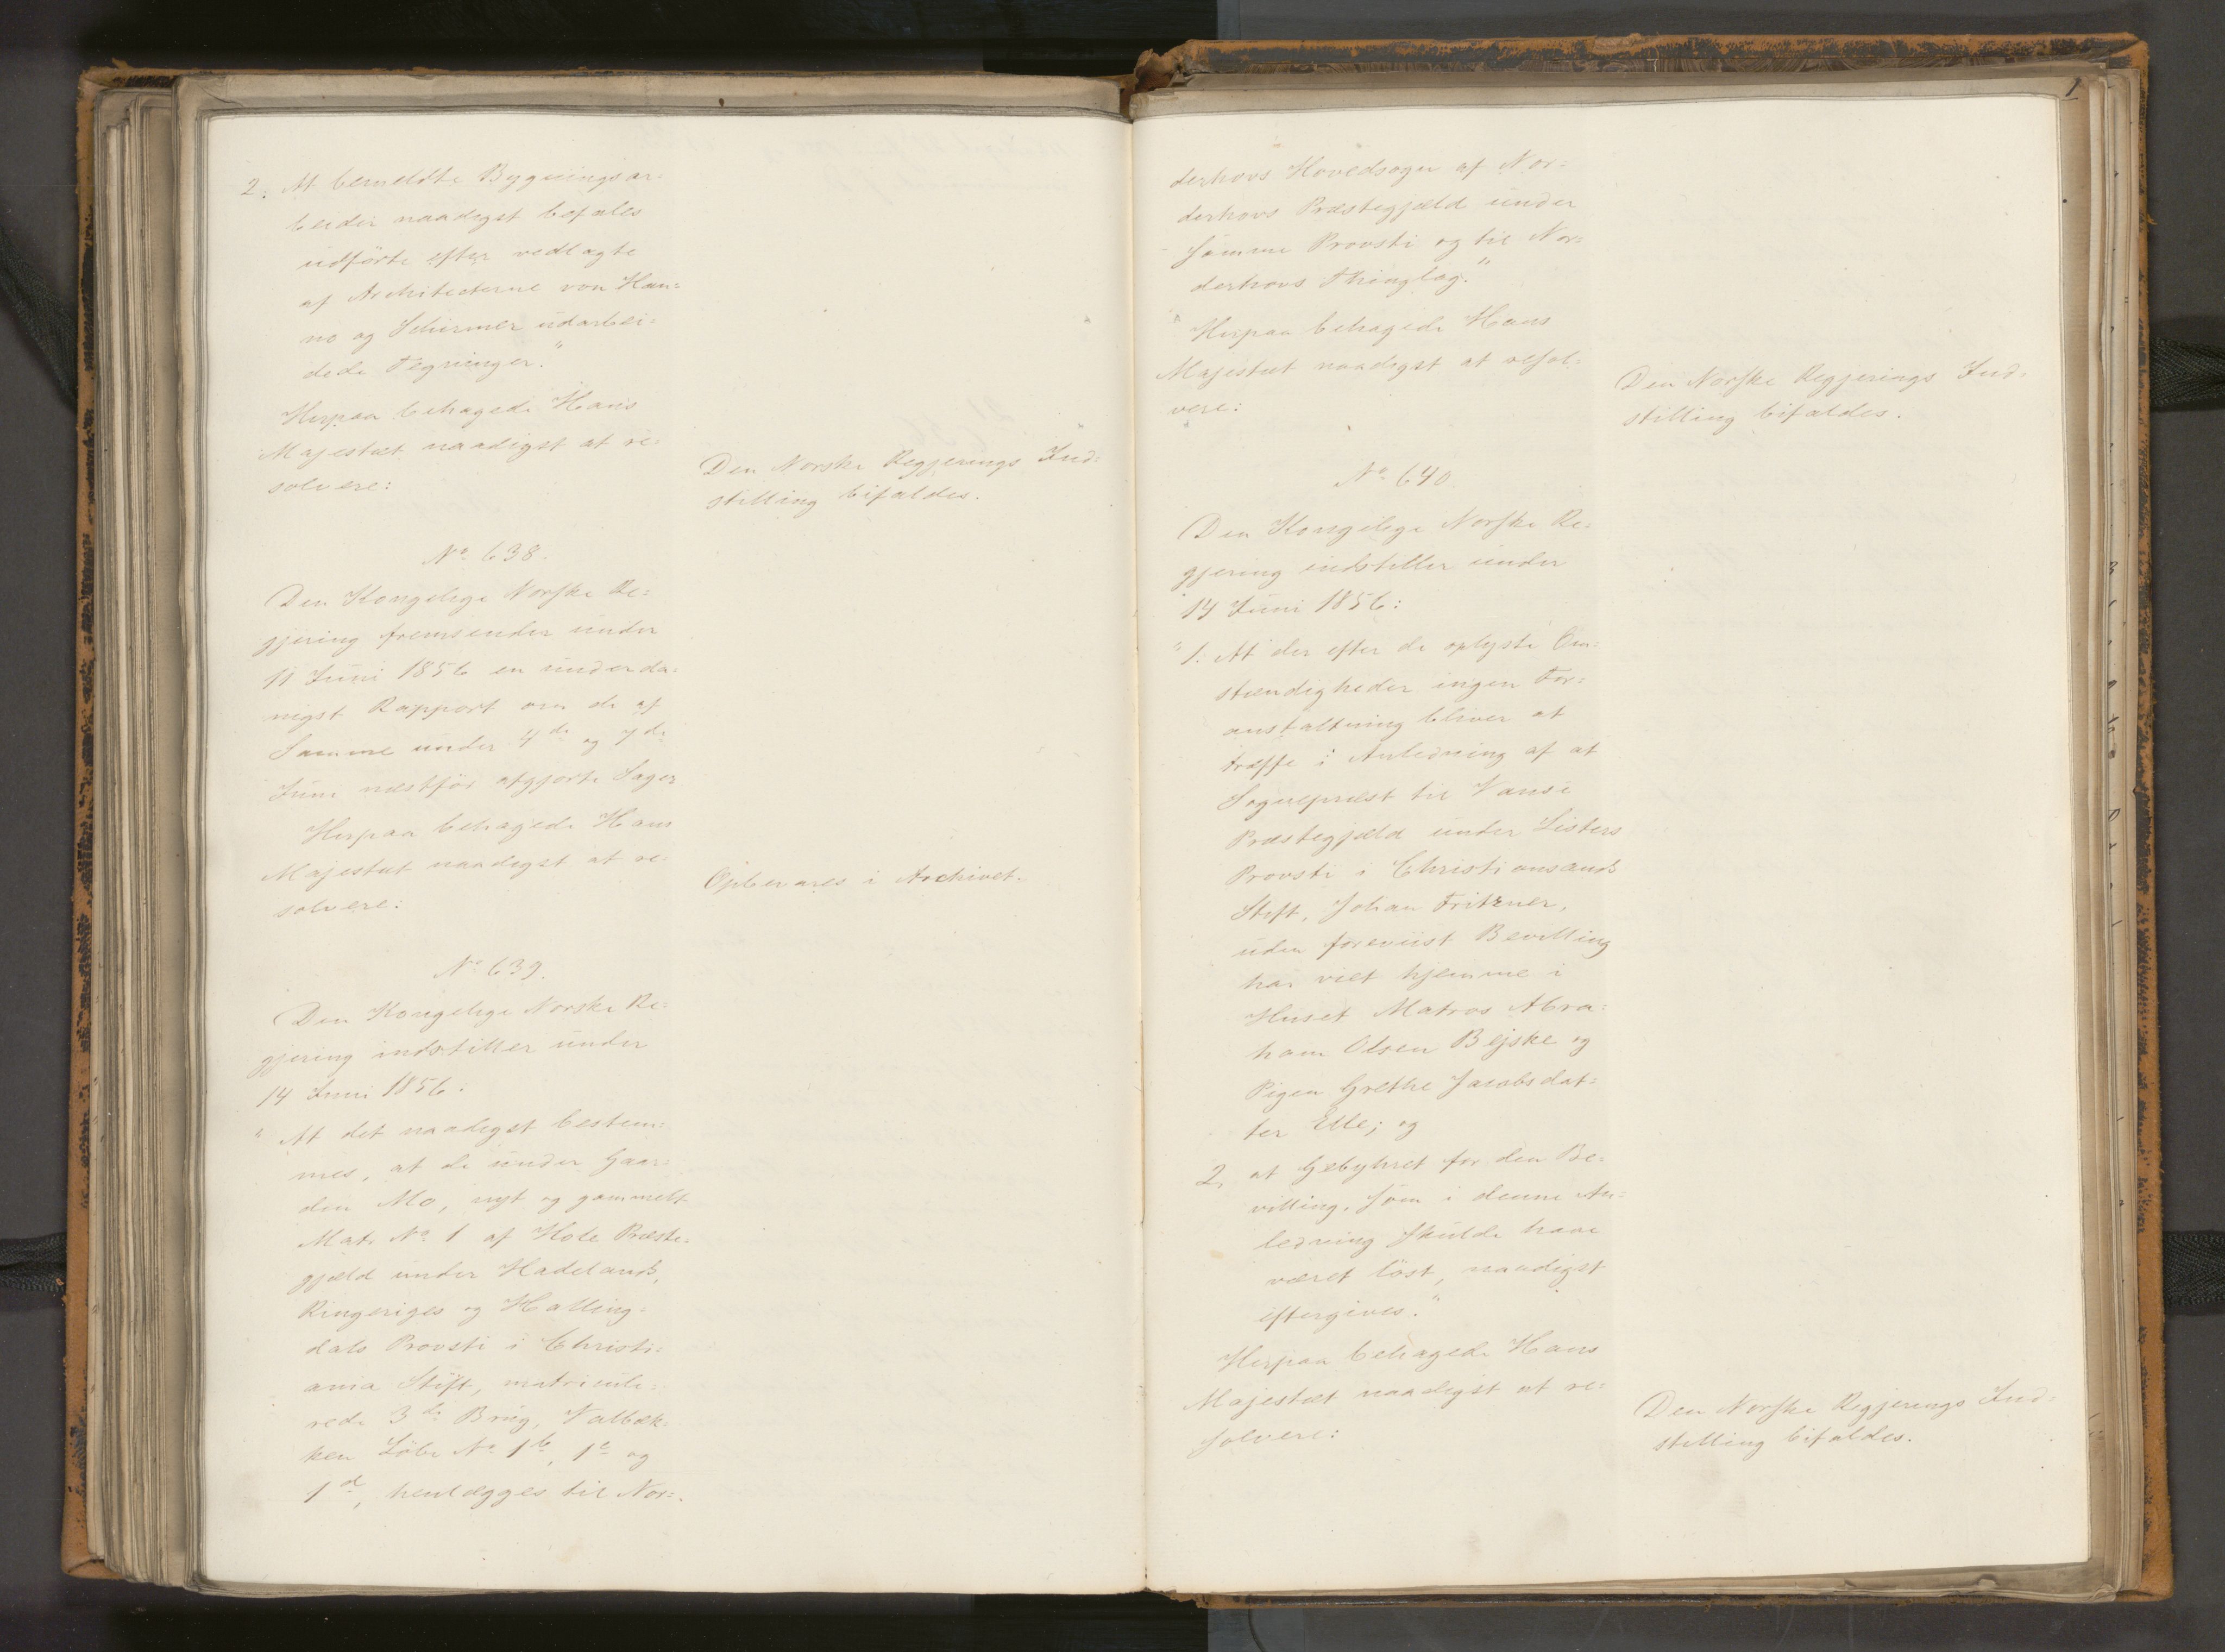 2. At bemeldte Bygningsar=
beider naadigst befales
udførte efter vedlagte
af Architecterne von Han=
no og Schirmer udarbei=
dede Tegninger."
Herpaa behagede Hans
Majestæt naadigst at re=
solvere:
Den Norske Regjerings Ind=
stilling bifaldes.
No 638.
Den Kongelige Norske Re=
gjering fremsender under
11 Juni 1856 en underda=
nigst Rapport om de af
Samme under 4de og 7de
Juni næstfør afgjorte Sager
Herpaa behagede Hans
Majestæt naadigst at re=
solvere:
Opbevares i Archivet.
No 639.
Den Kongelige Norske Re=
gjering indstiller under
14 Juni 1856:
" At det naadigst bestem=
mes, at de under Gaar=
den Mo, nyt og gammelt
Matr No 1 af Hole Præste=
gjæld under Hadelands,
Ringeriges og Halling=
dals Provsti i Christi=
ania Stift, matricule=
rede 3de Brug, Valbæk=
ken Løbe No 1b, 1c og
1d, henlægges til Nor=
derhovs Hovedsogn af Nor=
derhovs Præstegjæld under
samme Provsti og til Nor=
derhovs Thinglag."
Herpaa behagede Hans
Majestæt naadigst at resol=
vere:
Den Norske Regjerings Ind=
stilling bifaldes.
No 640.
Den Kongelige Norske Re=
gjering indstiller under
14 Juni 1856:
"1. At der efter de oplyste Om=
stændigheder ingen For=
anstaltning bliver at
træffe i Anledning af at
Sognepræst til Vanse
Præstegjæld under Listers
Provsti i Christiansands
Stift, Johan Fritzner,
uden foreviist Bevilling
har viet hjemme i
Huset Matros Abra=
ham Olsen Bejske og
Pigen Grethe Jacobsdat=
ter Elle; og
2, at Gebyhret for den Be=
villing, som i denne An=
ledning skulde have
været løst, naadigst
eftergives."
Herpaa behagede Hans
Majestæt naadigst at re=
solvere:
Den Norske Regjerings Ind=
stilling bifaldes.